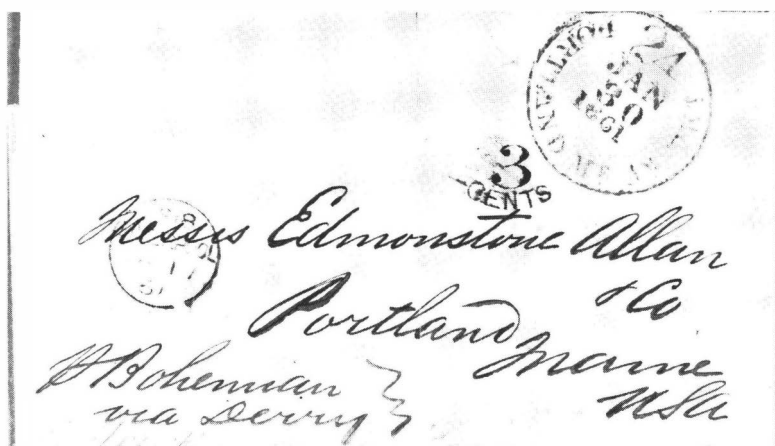 PORTLAND ME. AM. PKT
24
JAN
30
1861
3
CENTS
Messrs Edmonstone Allan
& Co
Portland
Maine
USA
Bohemian
via Derry